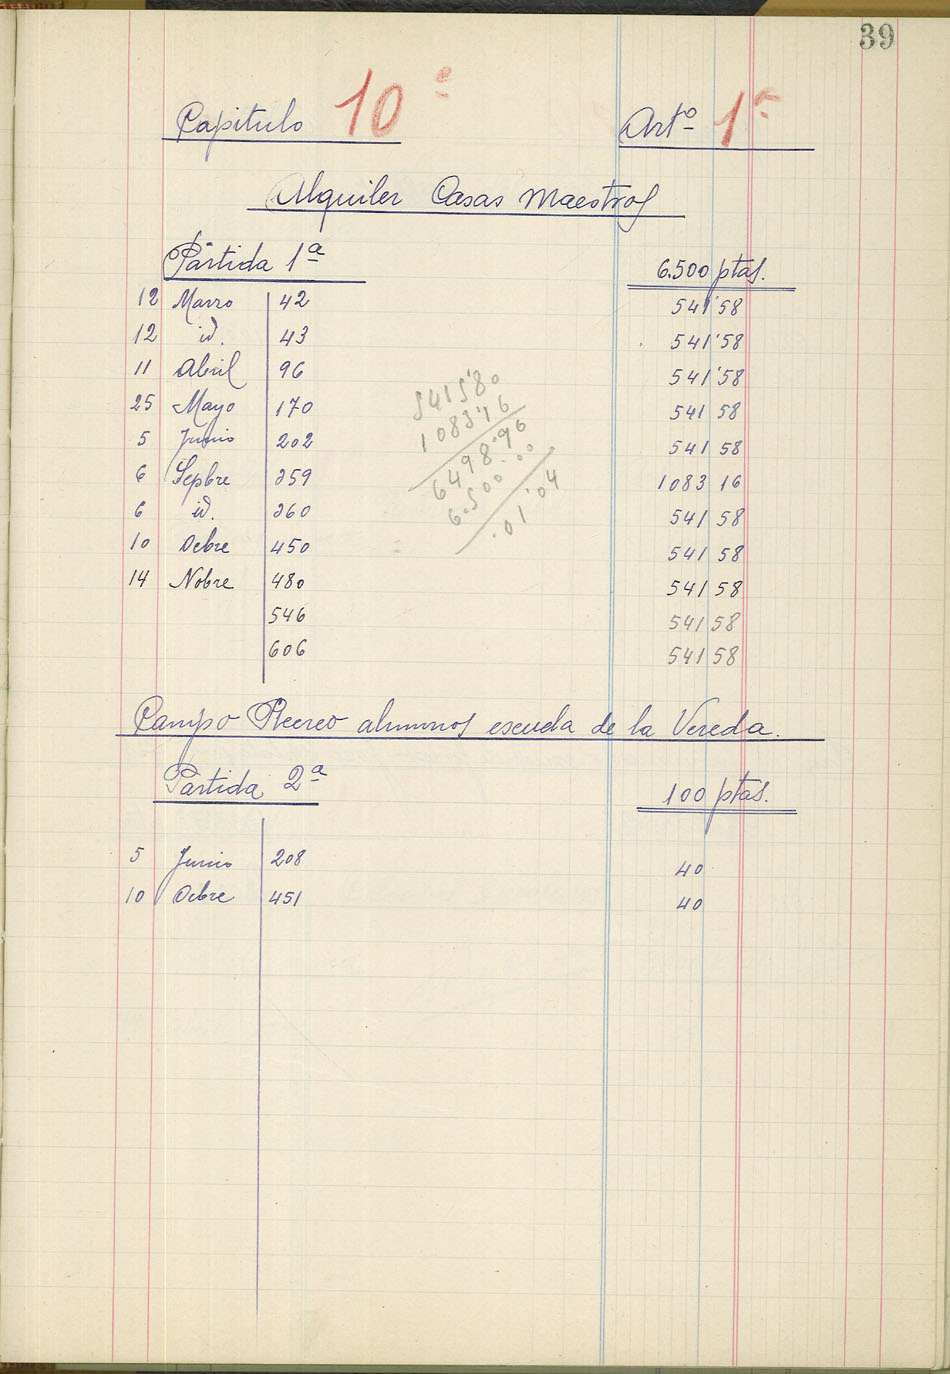 39
Capitulo 10º Artº 1º
Alquiler Casas Maestros
Partida 1ª 6.500 ptas.
12 Marzo 42 541'58
12 id. 43 541'58
11 Abril 96 541'58
25 Mayo 170 541 58
5 Junio 202 541 58
6 Sepbre 359 1083 16
6 id. 360 541 58
10 Ocbre 450 541 58
14 Nobre 480 541 58
546 541 58
606 541 58
5415'80
1083'16
6498'96
6.500.00
.01'04
Campo Recreo alumnos escuela de la Vereda.
Partida 2ª 100 ptas.
5 Junio 208 40
10 Ocbre 451 40